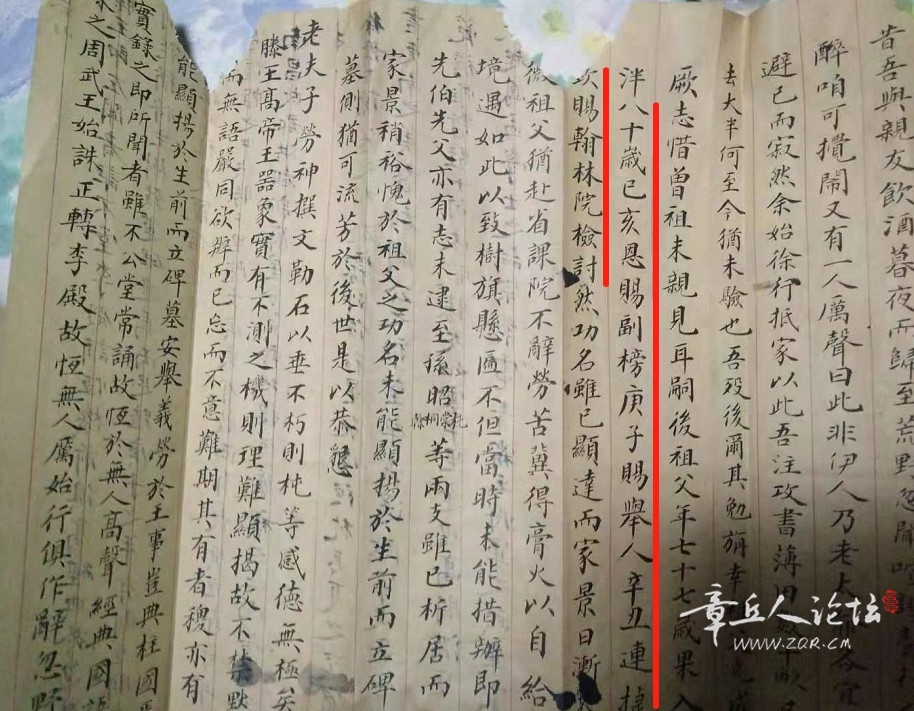 昔吾與親友飲酒暮夜而歸至荒野忽聞喧
醉咱可攪鬧又有一人厲聲曰此非伊人乃老大
避已而寂然余始徐行抵家以此吾注攻書薄田
去大半何至今猶未驗也吾殁後爾其勉旃幸
厥志惜曾祖未親見耳嗣後祖父年七十七歲果入
泮八十歲已亥恩賜副榜庚子賜舉人辛丑連捷
欽賜翰林院檢討然功名雖已顯達而家景日漸
微祖父猶赴省課院不辭勞苦冀得膏火以自給
境遇如此以致樹旗懸匾不但當時未能措辦即
先伯先父亦有志未逮至孫昭等兩支雖已析居而
家景稍裕愧於祖父之功名未能顯揚於生前而立碑
墓側猶可流芳於後世是以恭懇
老夫子勞神撰文勒石以垂不朽則杶等感德無極矣
滕王高帝王器象實有不測之機則理難顯揭故不禁默
而無語嚴同欲辨而已忘而不意難期其有者稷亦有
能顯揚於生前而立碑墓安舉義勞於王事豈典柱國
實錄之即所聞者雖不公堂常誦故恆於無人高聲經典國語
之周武王始誅正轉李殿故恆無人厲始行俱作辭忽
章丘人论坛
WWW.ZQR.CM